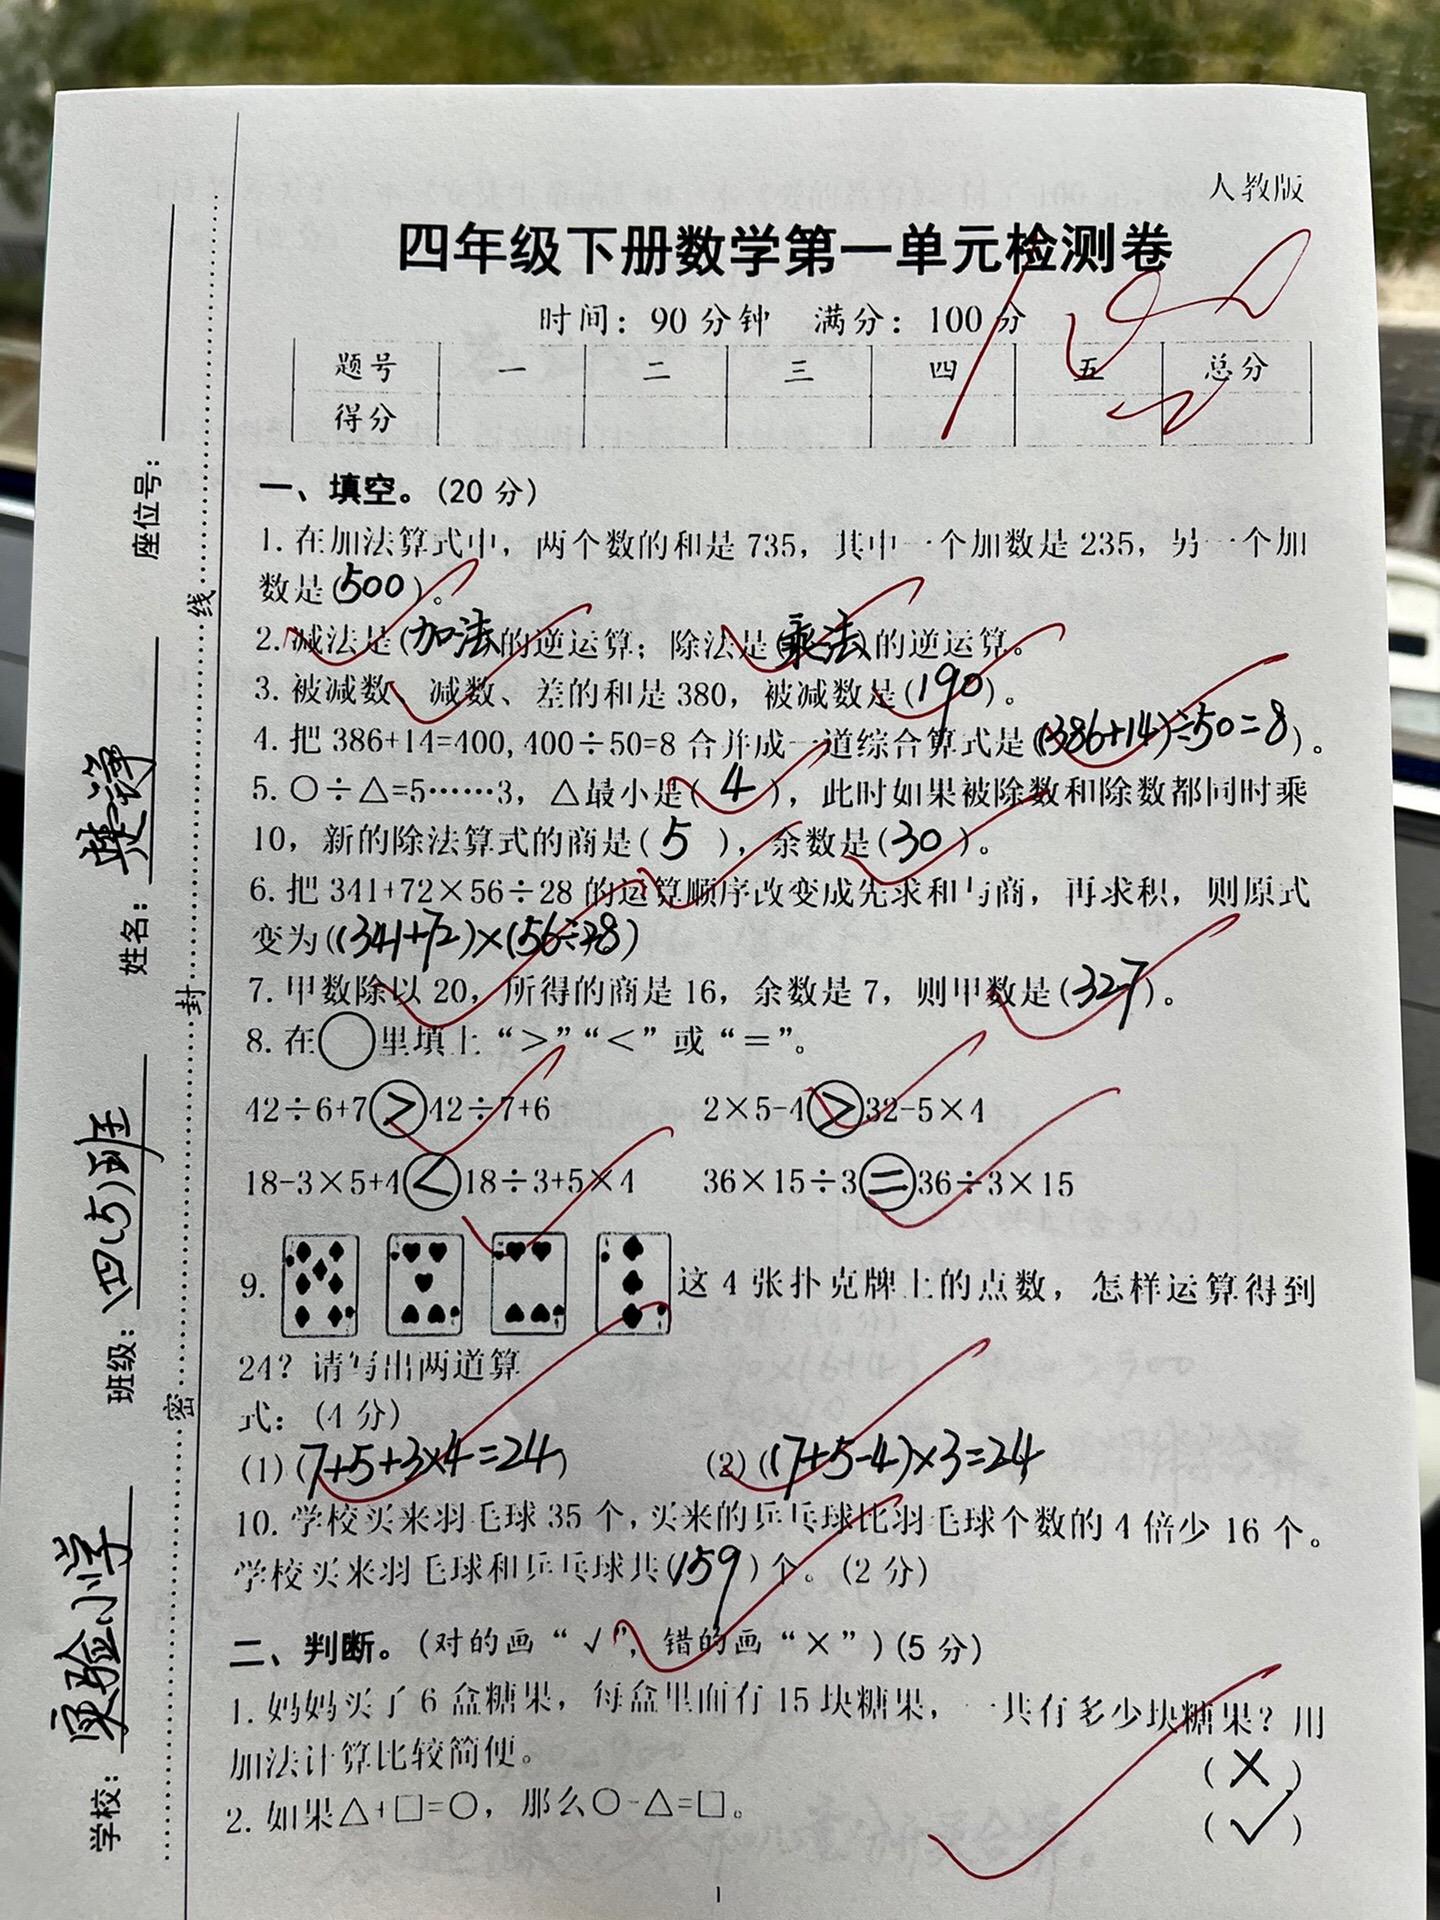 人教版
四年级下册数学第一单元检测卷
时间：90分钟 满分：100分
题号 一 二 三 四 五 总分
得分
一、填空。(20分)
1. 在加法算式中，两个数的和是735，其中一个加数是235，另一个加
数是(500)。
2. 减法是(加法)的逆运算；除法是(乘法)的逆运算。
3. 被减数、减数、差的和是380，被减数是(190)。
4. 把386+14=400, 400÷50=8合并成一道综合算式是((386+14)÷50=8)。
5. ○÷△=5……3，△最小是( 4 )，此时如果被除数和除数都同时乘
10，新的除法算式的商是( 5 )，余数是(30)。
6. 把341+72×56÷28的运算顺序改变成先求和与商，再求积，则原式
变为((341+72)×(56÷28)
7. 甲数除以20，所得的商是16，余数是7，则甲数是(327)。
8. 在○里填上“>”“<”或“=”。
42÷6+7>42÷7+6 2×5-4>32-5×4
18-3×5+4<18÷3+5×4 36×15÷3=36÷3×15
9. 这4张扑克牌上的点数，怎样运算得到
24？请写出两道算
式：(4分)
(1)(7+5+3×4=24) (2)((7+5-4)×3=24
10. 学校买来羽毛球35个，买来的乒乓球比羽毛球个数的4倍少16个。
学校买来羽毛球和乒乓球共(159)个。(2分)
二、判断。(对的画“√”，错的画“×”)(5分)
1. 妈妈买了6盒糖果，每盒里面有15块糖果，一共有多少块糖果？用
加法计算比较简便。 (×)
2. 如果△+□=○，那么○-△=□。 (√)
1
学校：实验小学 班级：四(5)班 姓名：楚诤 座位号：
密 封 线